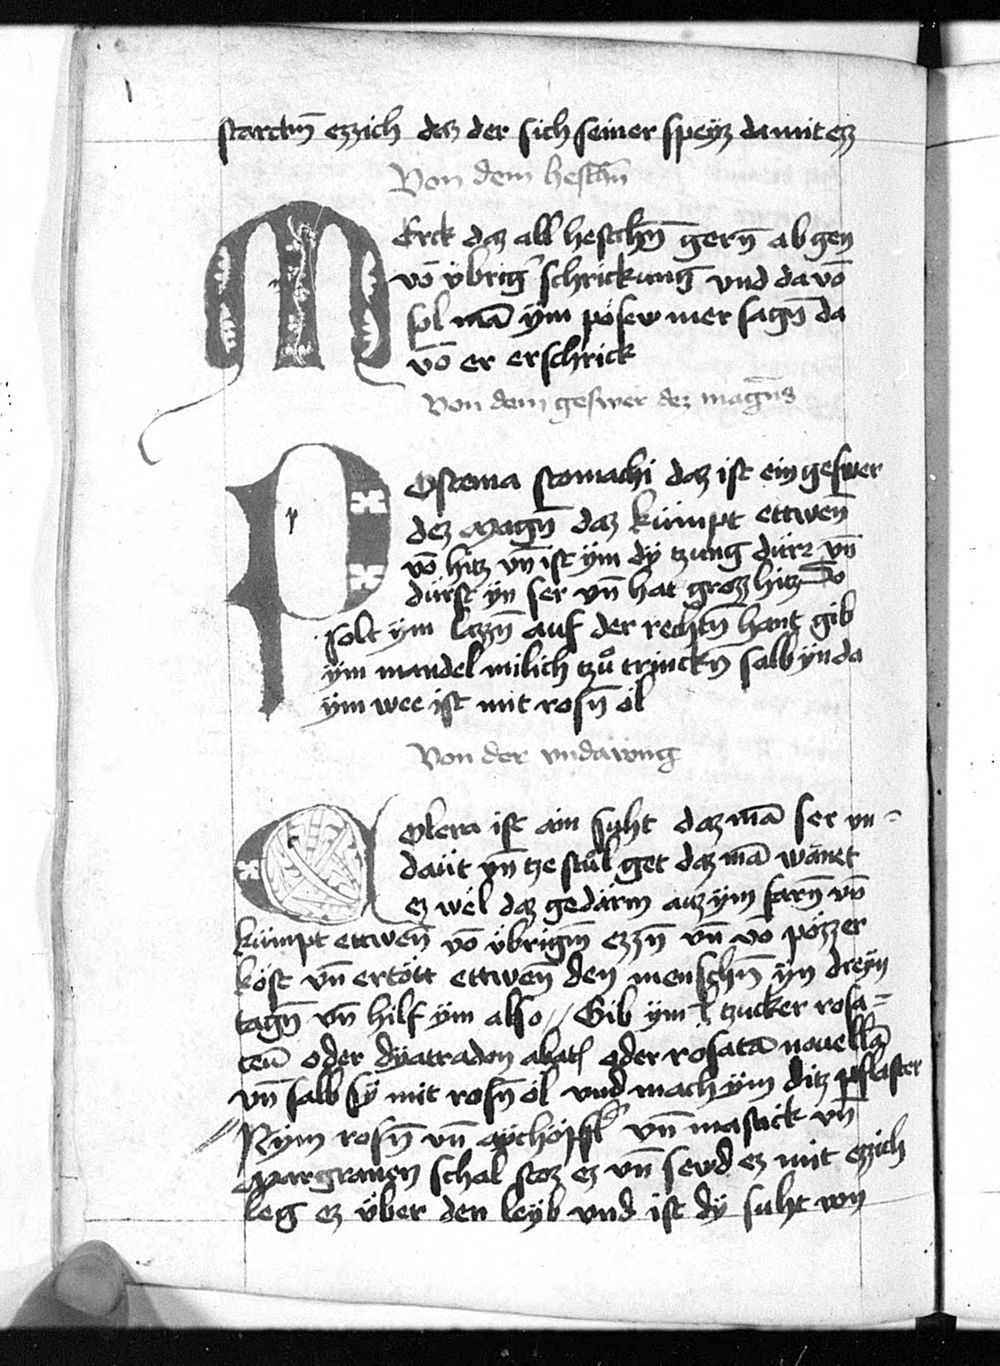 starckñ ezzich daz der sich seiner speyz damit ez
Von dem heschñ
MErck daz all heschkñ gerñ ab gen
vō ybrig' schrickung vnd da vō
sol mā ym pösew mer sagñ da
vō er erschrick
Von dem geswer dez magñs
POstema stomachi daz ist ein geswer
dez Magñ daz kümpt ettweñ
vō hitz vñ ist ym dy tzung dürr vñ
dürst yn ser vñ hat grozz hitz So
solt ym lazzñ auf der rechtñ hant gib
ym mandel milich tzů trinckñ salb yn da
ym wee ist mit rosñ öl
Von der vndawung
COlera ist ain suht daz mā ser vn=
daüt vñ tze stůl get daz mā wänet
ez wel daz gedärm auz ym farñ vñ
kümpt ettweñ vō übrigm̄ ezzñ vñ vo pözzer
köst vñ ertött ettweñ den menschñ yn dreyn
tagñ vñ hilf ym also // Gib ym tzucker rosa=
teū oder dyatradon abatȷ oder rosatā nouellā
vñ salb sy mit rosñ öl vnd mach ym ditz pflaster
// Nym rosñ vñ aychöpfl vñ mastick vñ
Margramen schal stoz ez vñ sewd ez mit ezzich
leg ez über den leyb vnd ist dy suht von